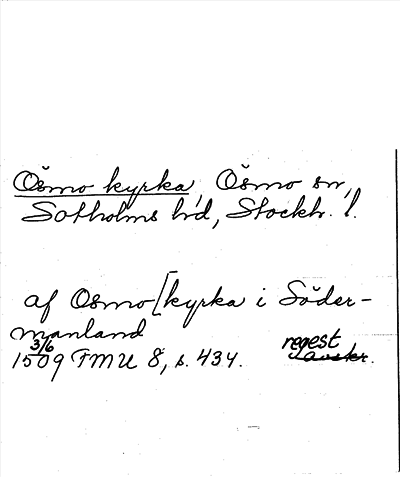 Ösmo kyrka, Ösmo sn,
Sotholms hd, Stockh. l.
af Osmo [kyrka i Söder-
manland
3/6
1509 FMU 8, s. 434. regest